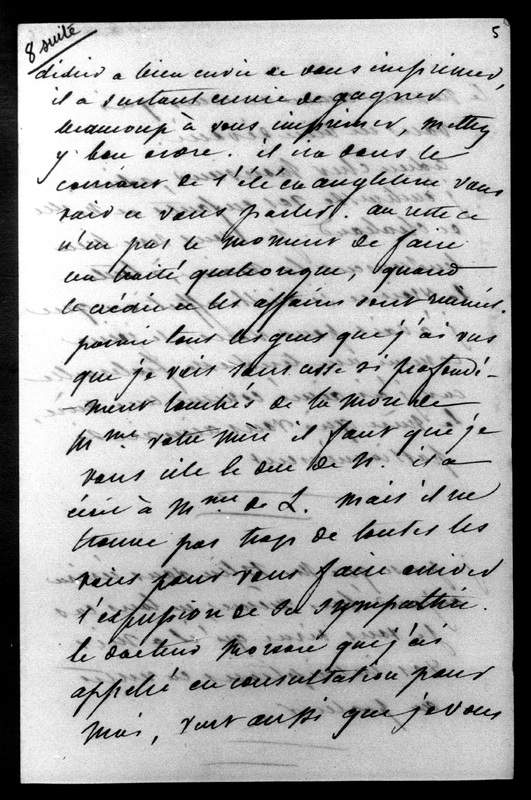 8 suite
5
didier a bien envie de vous imprimer,
il a surtout envie de gagner
beaucoup à vous imprimer, mettez
y bon ordre. il ira dans le
courant de l'été en angleterre vous
voir et vous parler. au reste ce
n'est pas le moment de faire
un traité quelconque, quand
le crédit et les affaires sont ruinés.
parmi tous les gens que j'ai vus
que je vois sans cesse si profondé-
ment touchés de la mort de
Mme votre mère il faut que je
vous cite le duc de N. il a
écrit à Mme de L. mais il ne
trouve pas trop de toutes les
voies pour vous faire arriver
l'expression de sa sympathie.
le docteur que j'ai
appelé en consultation pour
moi, veut aussi que je vous